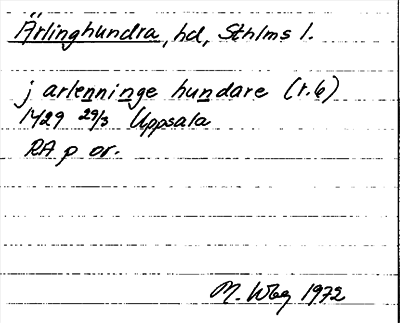 Ärlinghundra, hd, Sthlms l.
j arlenninge hundare (r.6)
1429 29/3 Uppsala
RA p or.
M. Wbg 1972